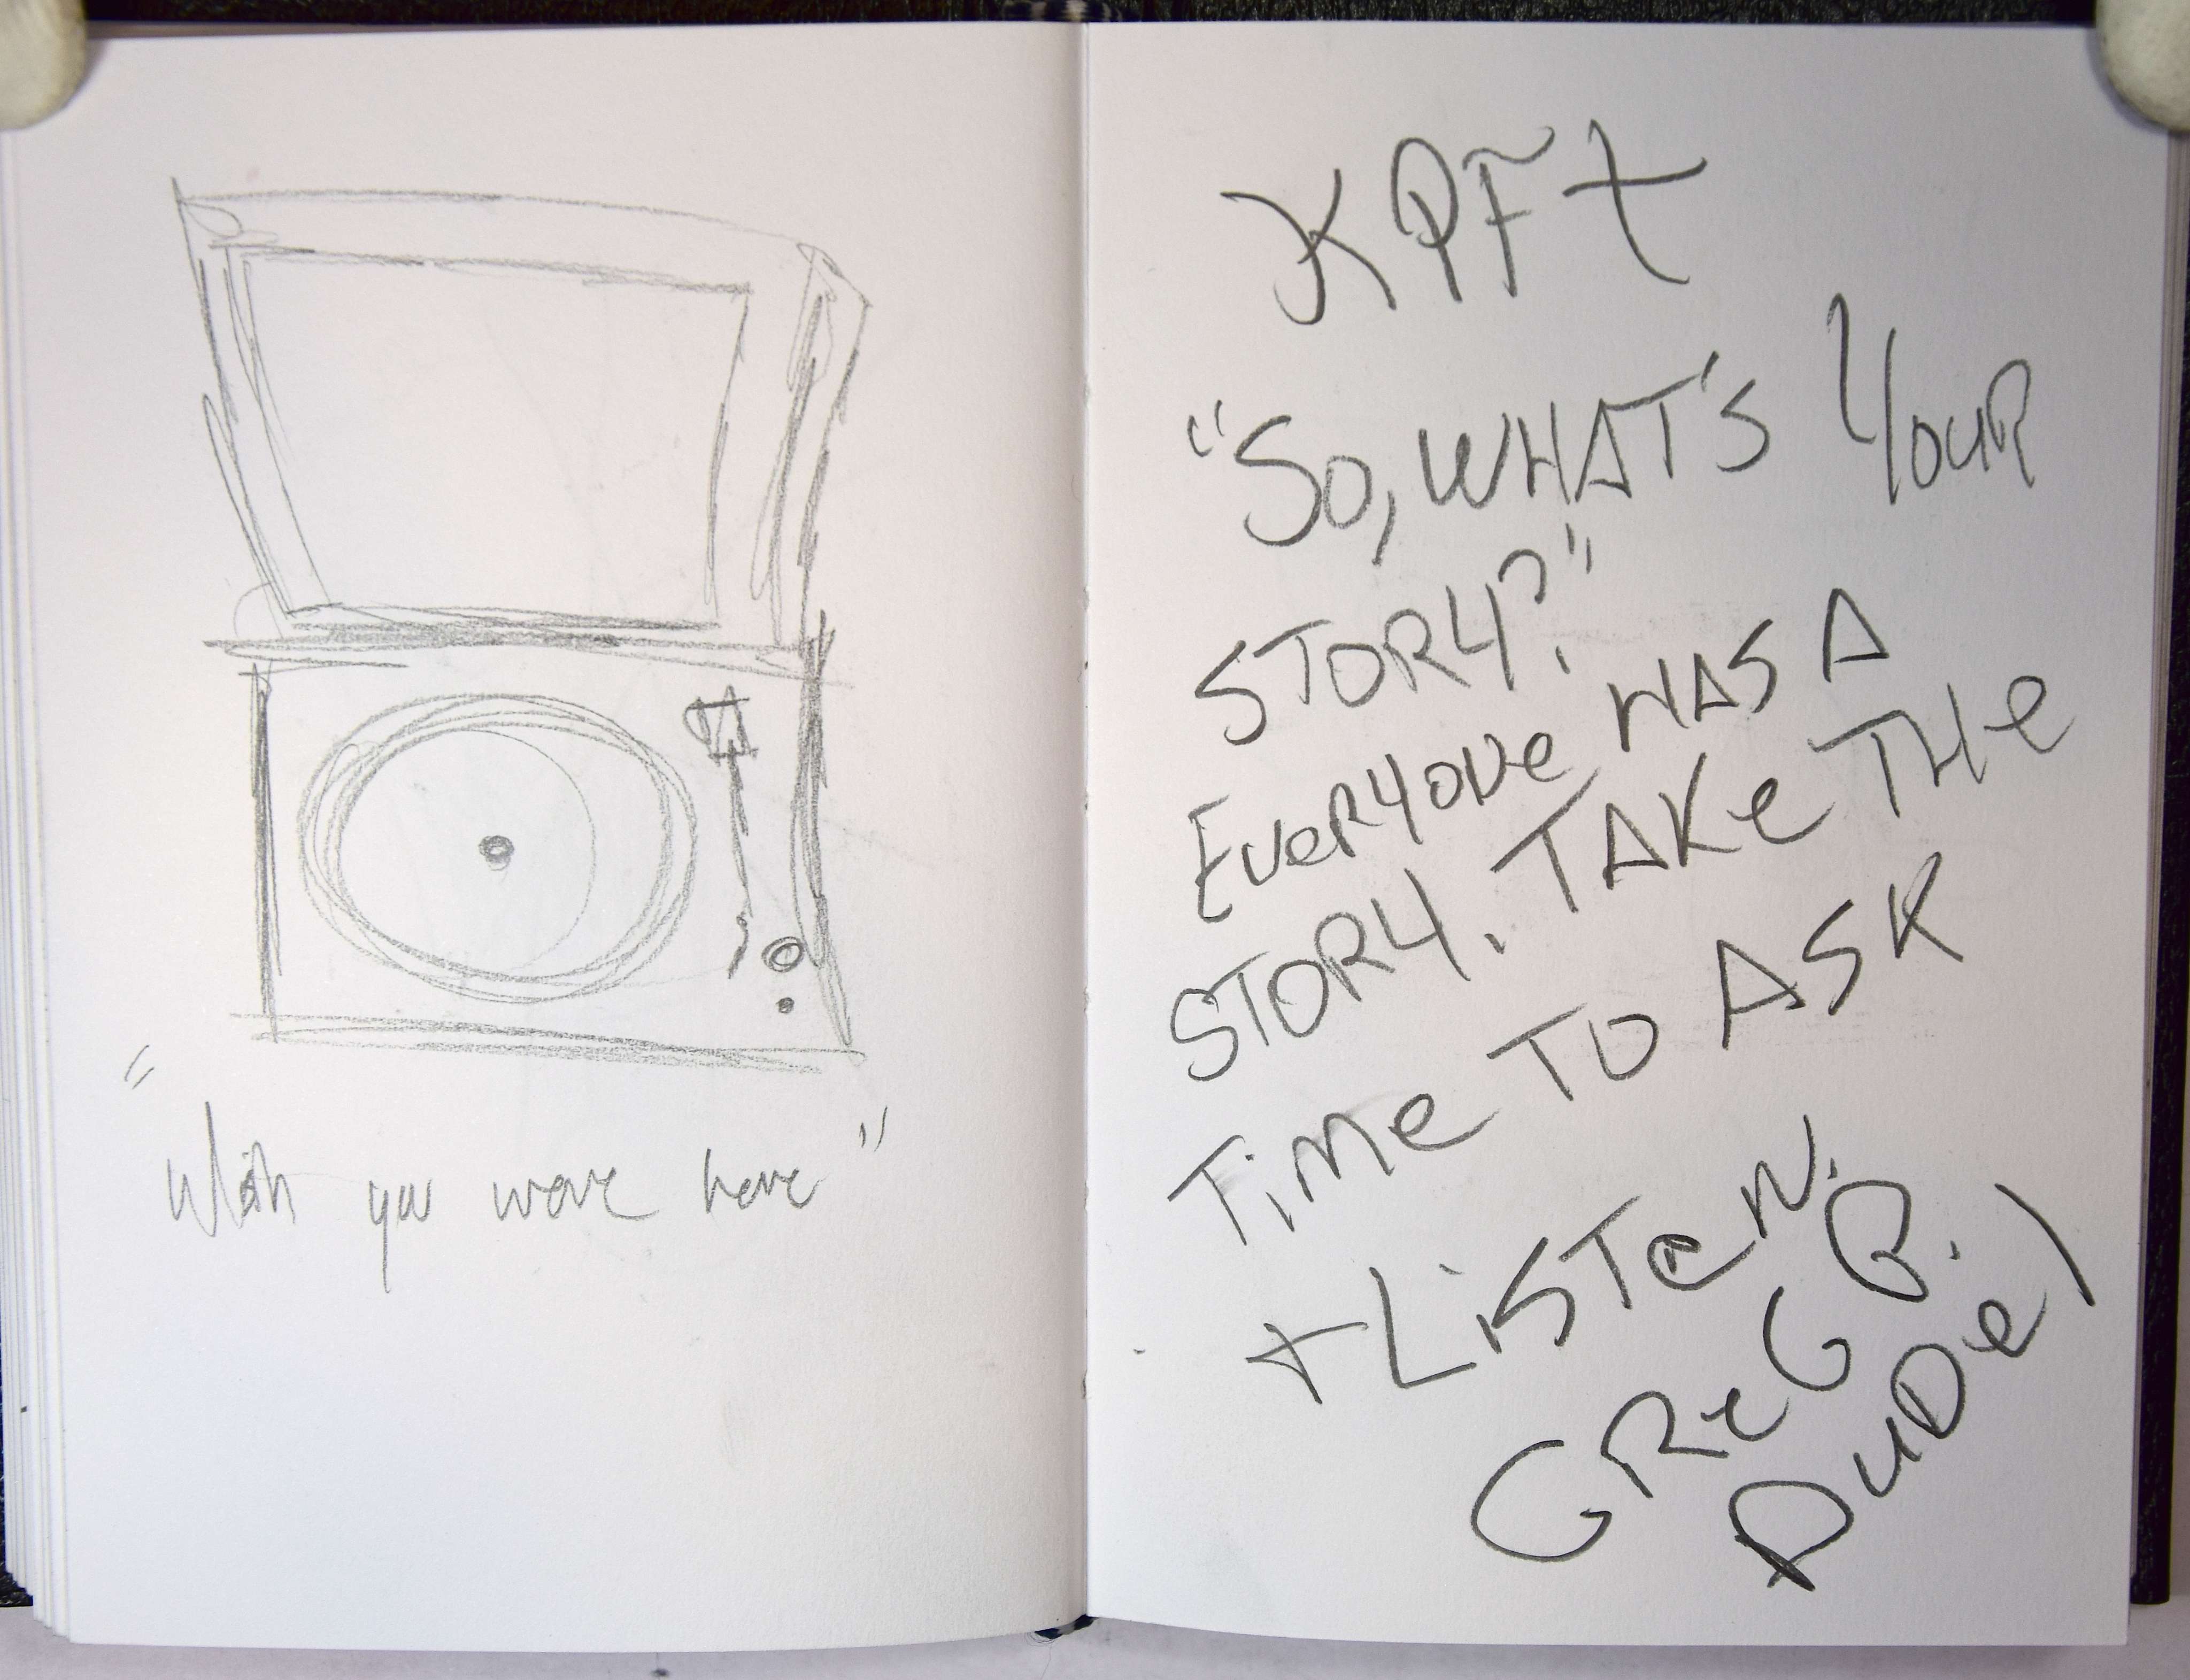 "Wish you were here"
KPFT
"So, WHAT'S YOUR
STORY?"
EVERYONE HAS A
STORY. TAKE THE
TIME TO ASK
+ LISTEN.
GREG B.
DUDE)